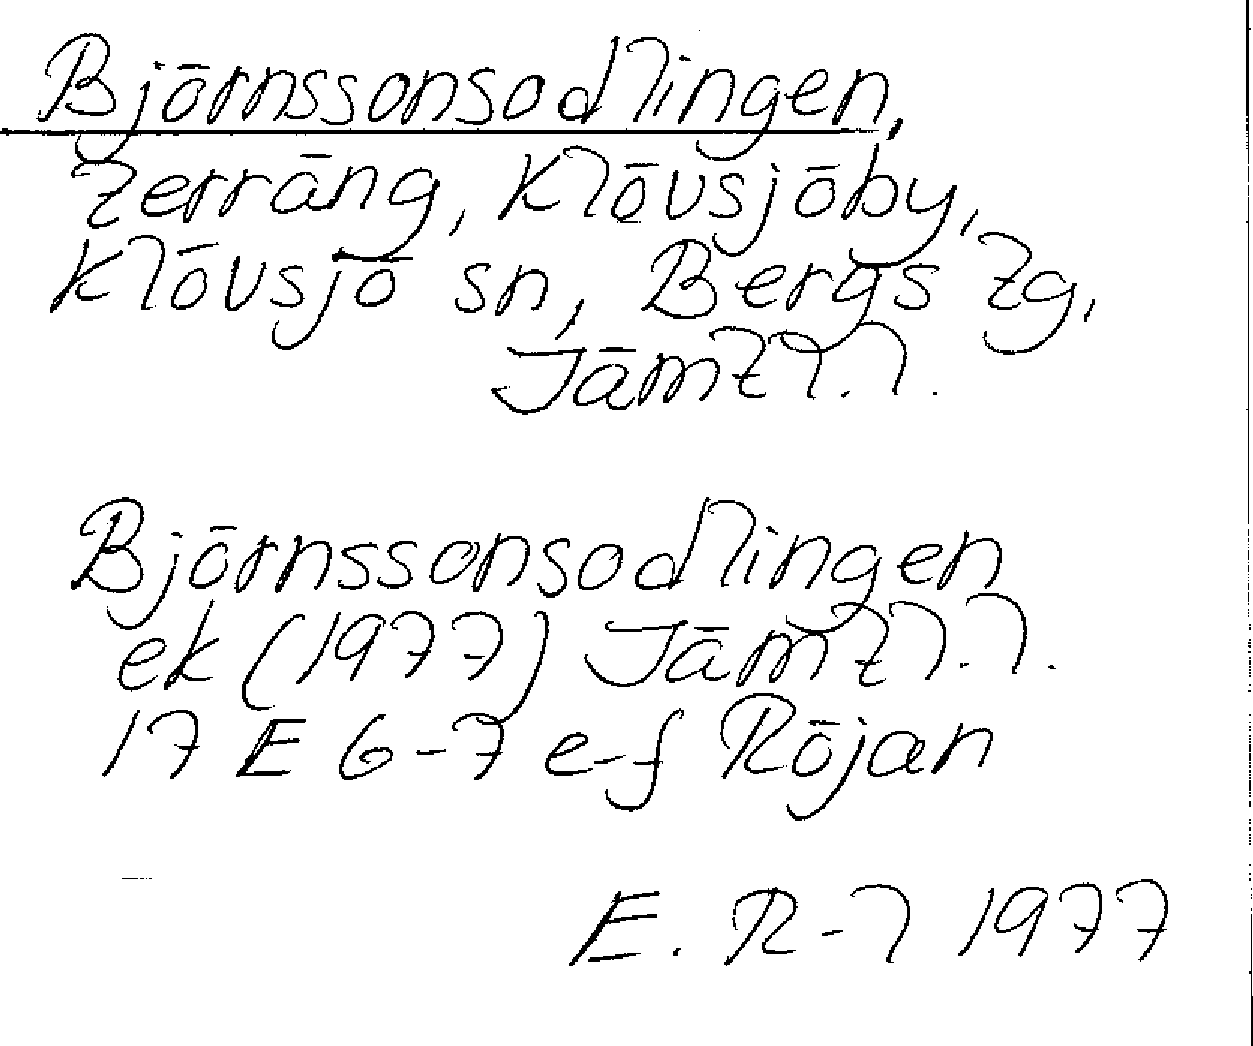 Björnssonsodlingen,
terräng, Klövsjöby,
Klövsjö sn, Bergs tg,
Jämtl.l.
Björnssonsodlingen
ek (1977) Jämtl.l.
17 E 6-7 e-f Röjan
E. R-l 1977